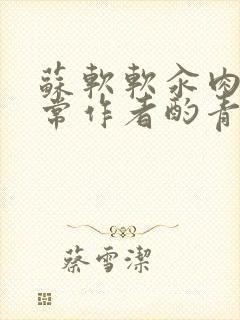 蘇軟軟汆肉
常作者酌青
蔡雪潔